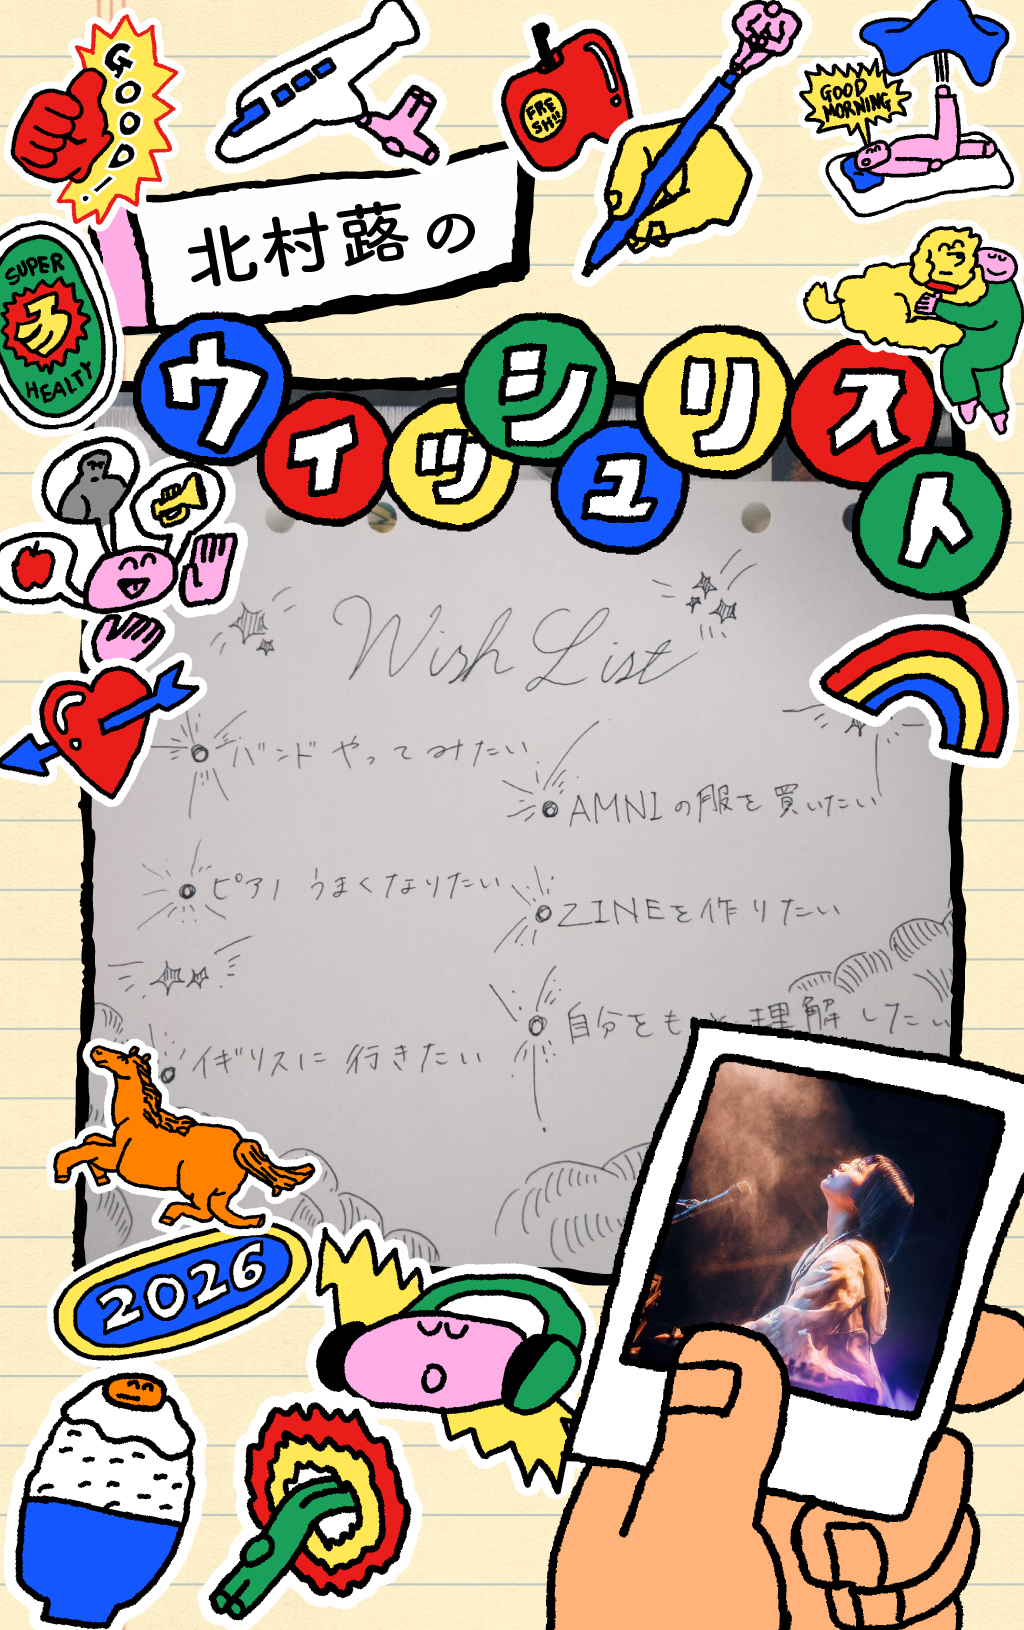 GOOD!
FRE
SH!!
GOOD
MORNING
北村蕗の
SUPER
HEALTY
ウィッシュリスト
Wish List
バンドやってみたい
AMNIの服を買いたい
ピアノうまくなりたい
ZINEを作りたい
自分をもっと理解したい
イギリスに行きたい
2026